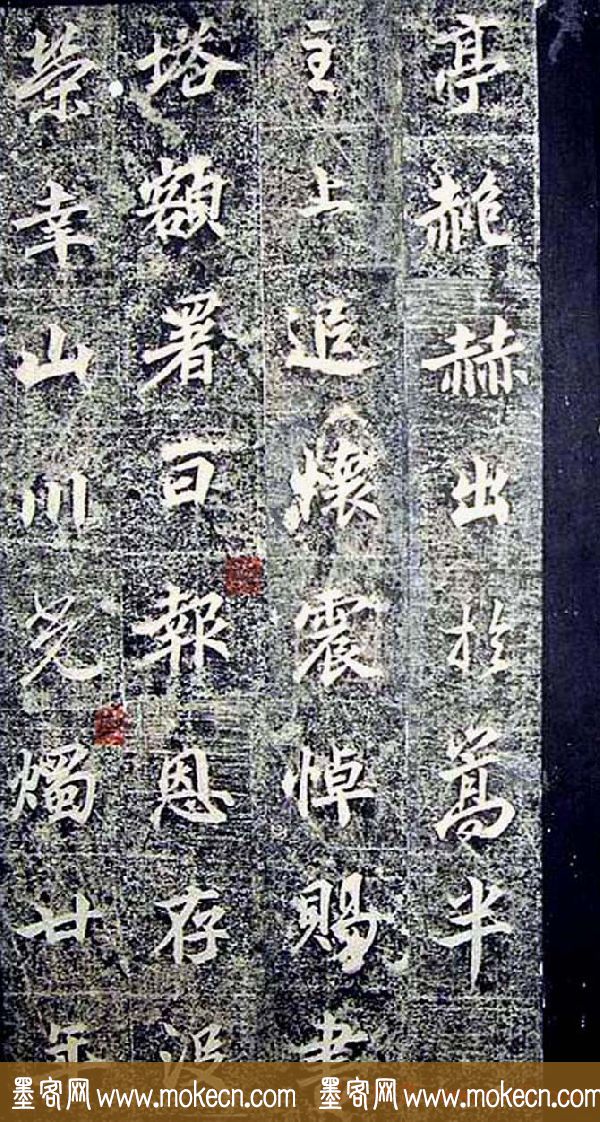 亭赩赫出於嵩半
主上追懷震悼賜書
塔額署曰報恩存没
榮幸山川光燭廿年
墨客网 www.mokecn.com 墨客网 www.mokecn.com